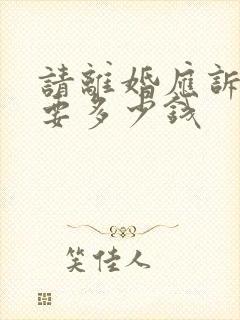 請離婚應訴
要多少錢
笑佳人